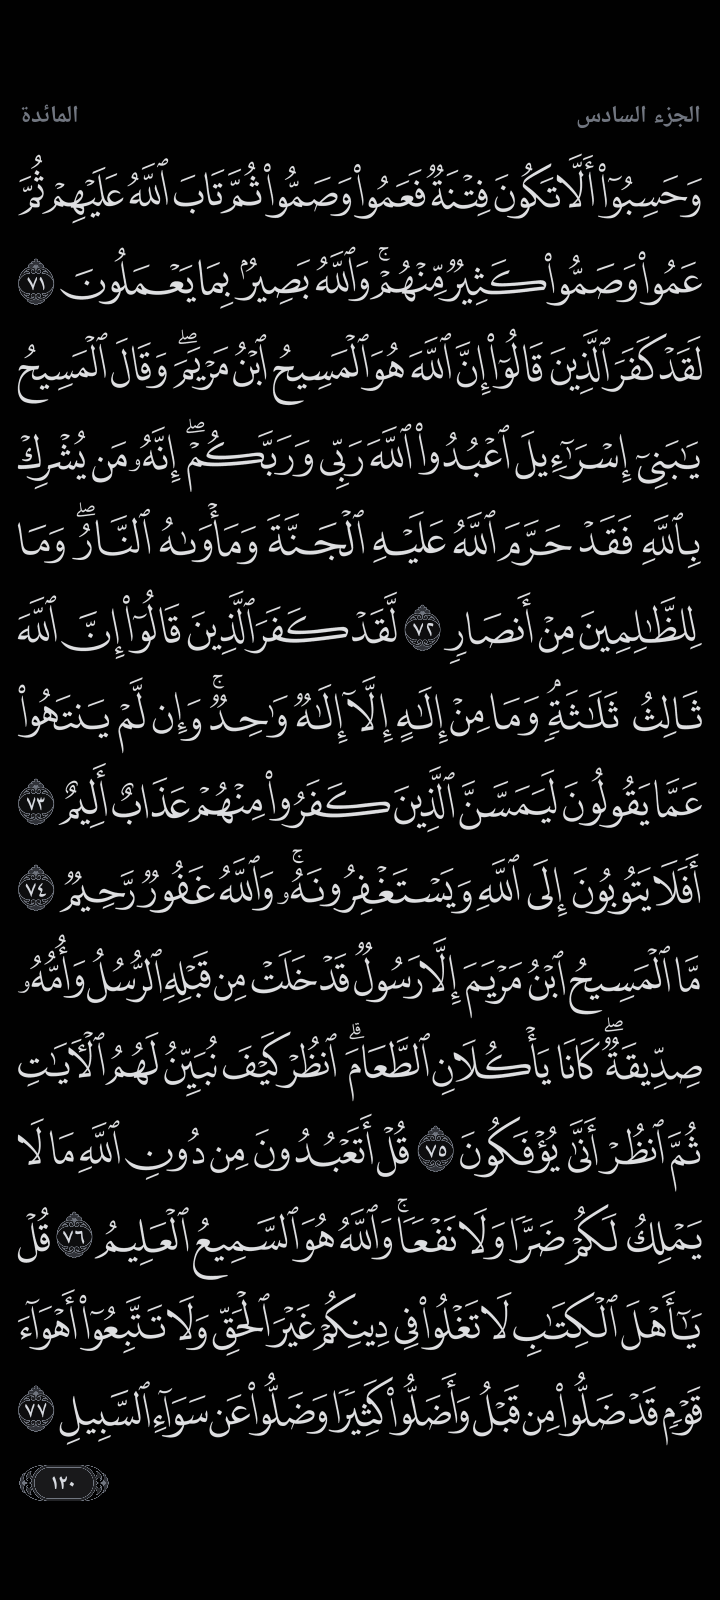 الجزء السادس
المائدة
وَحَسِبُوٓا۟ أَلَّا تَكُونَ فِتْنَةٌۭ فَعَمُوا۟ وَصَمُّوا۟ ثُمَّ تَابَ ٱللَّهُ عَلَيْهِمْ ثُمَّ
عَمُوا۟ وَصَمُّوا۟ كَثِيرٌۭ مِّنْهُمْ ۚ وَٱللَّهُ بَصِيرٌۢ بِمَا يَعْمَلُونَ ٧١
لَقَدْ كَفَرَ ٱلَّذِينَ قَالُوٓا۟ إِنَّ ٱللَّهَ هُوَ ٱلْمَسِيحُ ٱبْنُ مَرْيَمَ ۖ وَقَالَ ٱلْمَسِيحُ
يَـٰبَنِىٓ إِسْرَٰٓءِيلَ ٱعْبُدُوا۟ ٱللَّهَ رَبِّى وَرَبَّكُمْ ۖ إِنَّهُۥ مَن يُشْرِكْ
بِٱللَّهِ فَقَدْ حَرَّمَ ٱللَّهُ عَلَيْهِ ٱلْجَنَّةَ وَمَأْوَىٰهُ ٱلنَّارُ ۖ وَمَا
لِلظَّـٰلِمِينَ مِنْ أَنصَارٍۢ ٧٢ لَّقَدْ كَفَرَ ٱلَّذِينَ قَالُوٓا۟ إِنَّ ٱللَّهَ
ثَالِثُ ثَلَـٰثَةٍۢ ۘ وَمَا مِنْ إِلَـٰهٍ إِلَّآ إِلَـٰهٌۭ وَٰحِدٌۭ ۚ وَإِن لَّمْ يَنتَهُوا۟
عَمَّا يَقُولُونَ لَيَمَسَّنَّ ٱلَّذِينَ كَفَرُوا۟ مِنْهُمْ عَذَابٌ أَلِيمٌ ٧٣
أَفَلَا يَتُوبُونَ إِلَى ٱللَّهِ وَيَسْتَغْفِرُونَهُۥ ۚ وَٱللَّهُ غَفُورٌۭ رَّحِيمٌۭ ٧٤
مَّا ٱلْمَسِيحُ ٱبْنُ مَرْيَمَ إِلَّا رَسُولٌۭ قَدْ خَلَتْ مِن قَبْلِهِ ٱلرُّسُلُ وَأُمُّهُۥ
صِدِّيقَةٌۭ ۖ كَانَا يَأْكُلَانِ ٱلطَّعَامَ ۗ ٱنظُرْ كَيْفَ نُبَيِّنُ لَهُمُ ٱلْـَٔايَـٰتِ
ثُمَّ ٱنظُرْ أَنَّىٰ يُؤْفَكُونَ ٧٥ قُلْ أَتَعْبُدُونَ مِن دُونِ ٱللَّهِ مَا لَا
يَمْلِكُ لَكُمْ ضَرًّۭا وَلَا نَفْعًۭا ۚ وَٱللَّهُ هُوَ ٱلسَّمِيعُ ٱلْعَلِيمُ ٧٦ قُلْ
يَـٰٓأَهْلَ ٱلْكِتَـٰبِ لَا تَغْلُوا۟ فِى دِينِكُمْ غَيْرَ ٱلْحَقِّ وَلَا تَتَّبِعُوٓا۟ أَهْوَآءَ
قَوْمٍۢ قَدْ ضَلُّوا۟ مِن قَبْلُ وَأَضَلُّوا۟ كَثِيرًۭا وَضَلُّوا۟ عَن سَوَآءِ ٱلسَّبِيلِ ٧٧
١٢٠